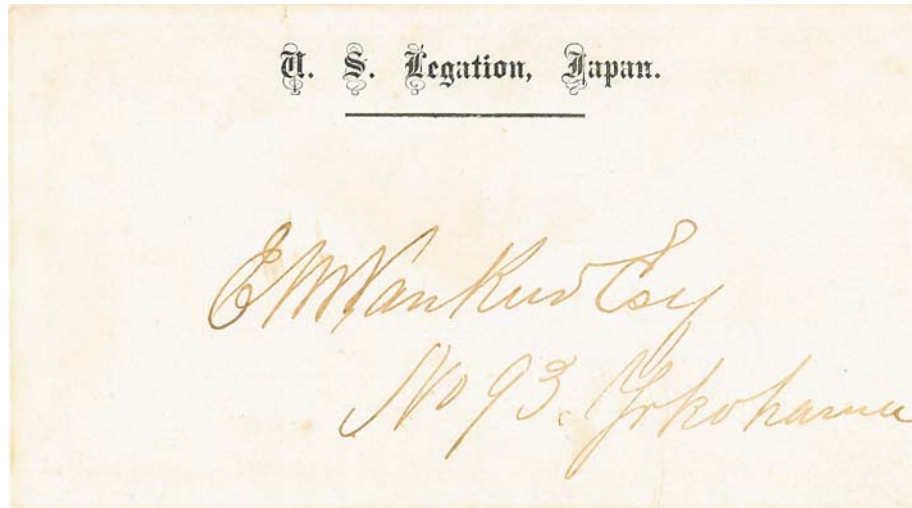 U. S. Legation, Japan.
E M Van Reed Esq
No 93. Yokohama